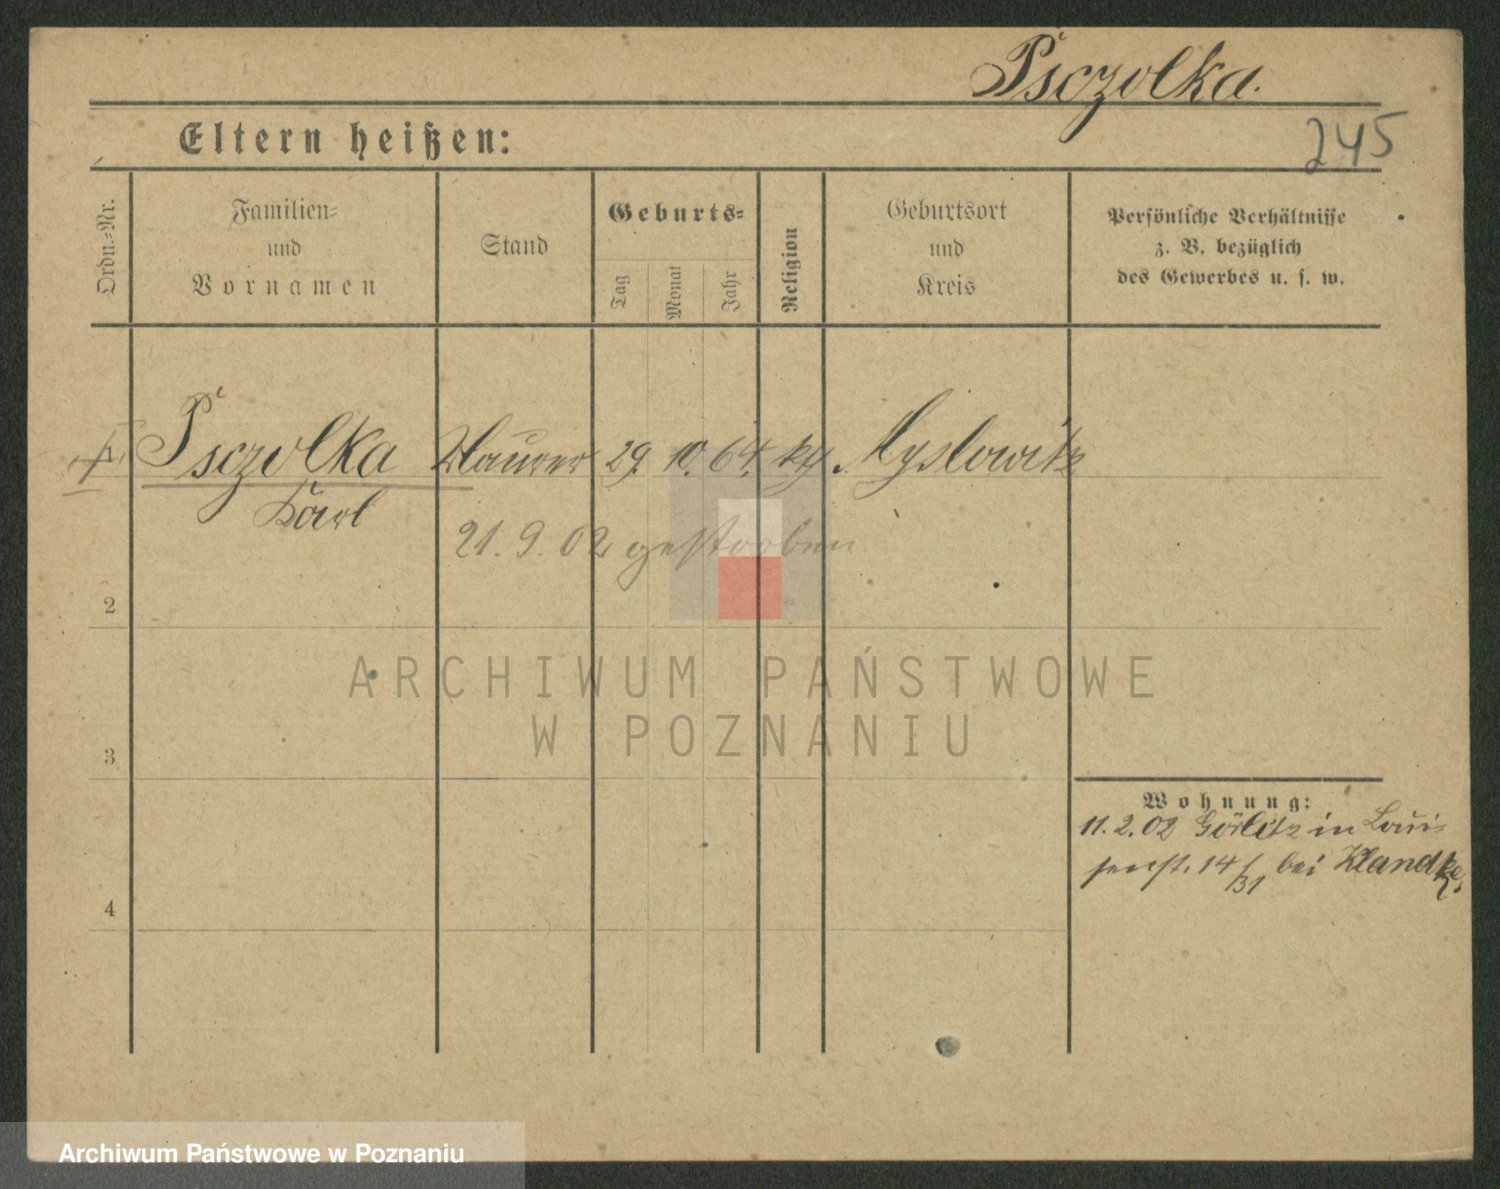 Psczolka.
245
Eltern heißen:
Ordn.-Nr.
Familien- und Vornamen
Stand
Geburts-
Tag
Monat
Jahr
Religion
Geburtsort und Kreis
Persönliche Verhältnisse
z. B. bezüglich
des Gewerbes u. s. w.
1 Psczolka Maurer 29. 10. 64. kth. Myslowitz
Karl
21. 9. 02 gestorben
2
3
4
Wohnung:
11. 2. 02 Görlitz in Loui-
senst. 14 /31 bei Klandke.
ARCHIWUM PAŃSTWOWE
W POZNANIU
Archiwum Państwowe w Poznaniu